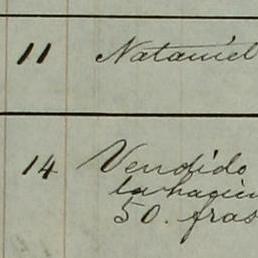 11 Nataniel
14 Vendido
la hacien
50. fras